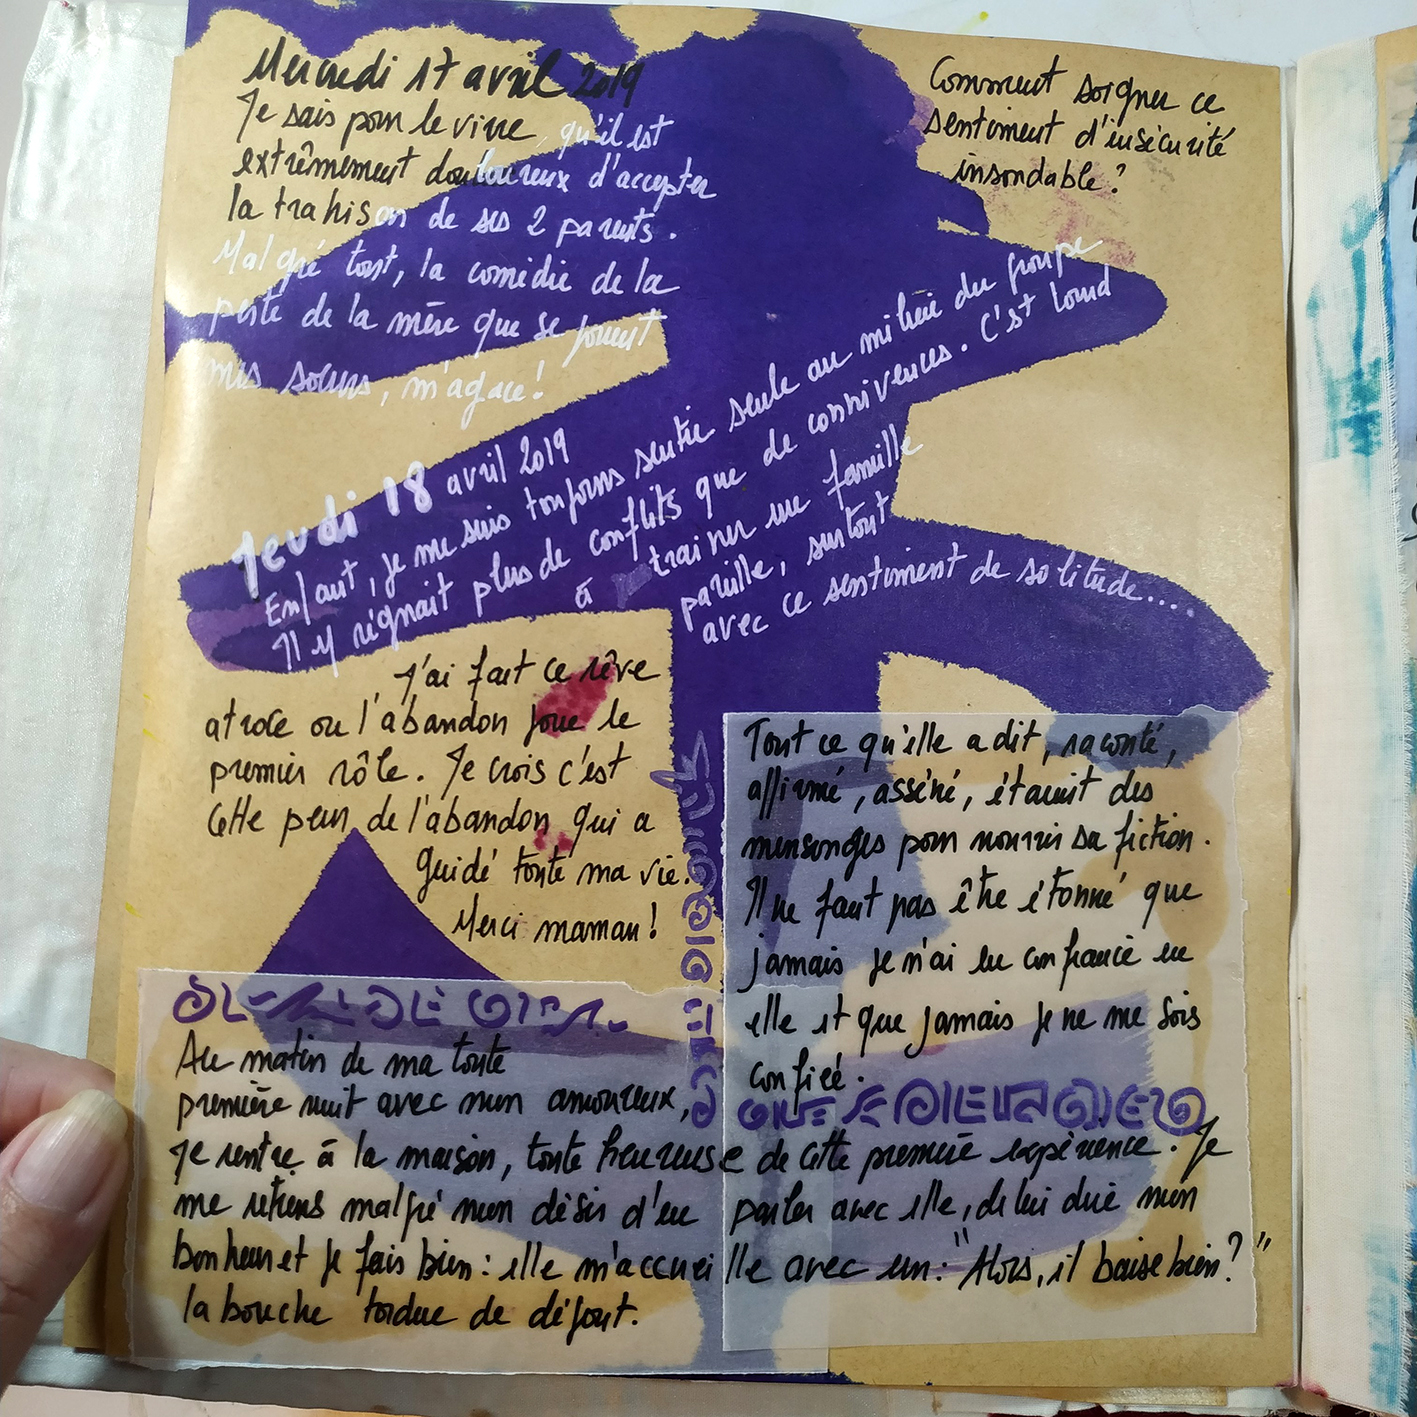 Mercredi 17 avril 2019
Je sais pour le vivre qu'il est
extrêmement douloureux d'accepter
la trahison de ses 2 parents.
Malgré tout, la comédie de la
perte de la mère que se jouent
mes soeurs, m'agace!
Comment soigner ce
sentiment d'insécurité
insondable?
Jeudi 18 avril 2019
Enfant, je me suis toujours sentie seule au milieu du groupe
Il y règnait plus de conflits que de connivences. C'est lourd
à trainer une famille
pareille, surtout
avec ce sentiment de solitude....
J'ai fait ce rêve
atroce ou l'abandon joue le
premier rôle. Je crois c'est
cette peur de l'abandon qui a
guidé toute ma vie.
Merci maman!
Tout ce qu'elle a dit, raconté,
affirmé, asséné, étaient des
mensonges pour nourrir sa fiction.
Il ne faut pas être étonné que
jamais je n'ai eu confiance en
elle et que jamais je ne me sois
confiée.
Au matin de ma toute
première nuit avec mon amoureux,
je rentre à la maison, toute heureuse de cette première expérience. Je
me retiens malgré mon désir d'en parler avec elle, de lui dire mon
bonheur et je fais bien: elle m'accueille avec un: "Alors, il baise bien?"
la bouche tordue de dégout.